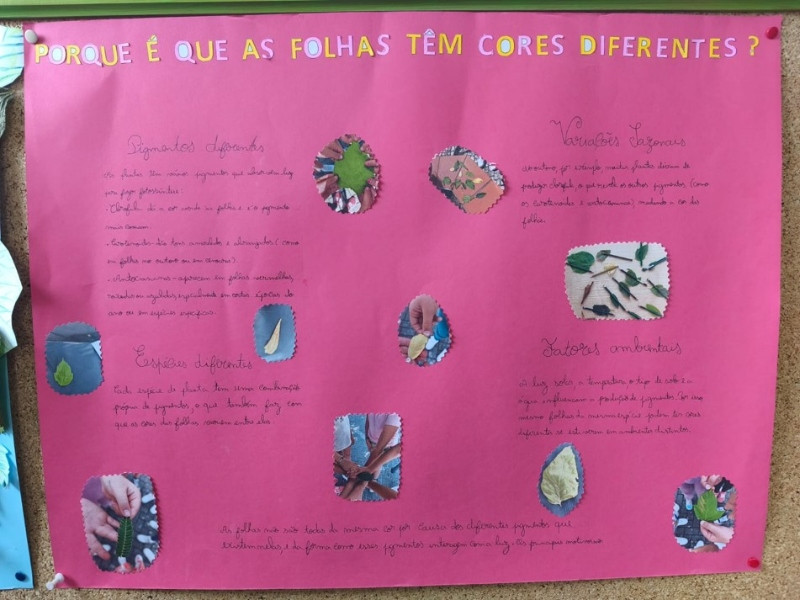 PORQUE É QUE AS FOLHAS TÊM CORES DIFERENTES ?
Pigmentos diferentes
As folhas têm vários pigmentos que absorvem luz
para fazer fotossíntese:
- Clorofila dá a cor verde às folhas e é o pigmento
mais comum
- Carotenoides dão tons amarelados e alaranjados (como
em folhas no outono ou em cenouras)
- Antocianinas - aparecem em folhas avermelhadas,
roxeadas ou azuladas, especialmente em certas épocas do
ano ou em espécies específicas.
Espécies diferentes
Cada espécie de planta tem uma combinação
própria de pigmentos, o que também faz com
que as cores das folhas variem entre elas.
Variações Sazonais
No outono, por exemplo, muitas plantas deixam de
produzir clorofila, o que revela os outros pigmentos (como
os carotenoides e antocianinas), mudando a cor das
folhas.
Fatores ambientais
A luz solar, a temperatura, o tipo de solo e a
água influenciam a produção de pigmentos. Por isso,
mesmo folhas da mesma espécie podem ter cores
diferentes se estiverem em ambientes distintos.
As folhas não são todas da mesma cor por causa dos diferentes pigmentos que
existem nelas, e da forma como esses pigmentos interagem com a luz. Os principais motivos